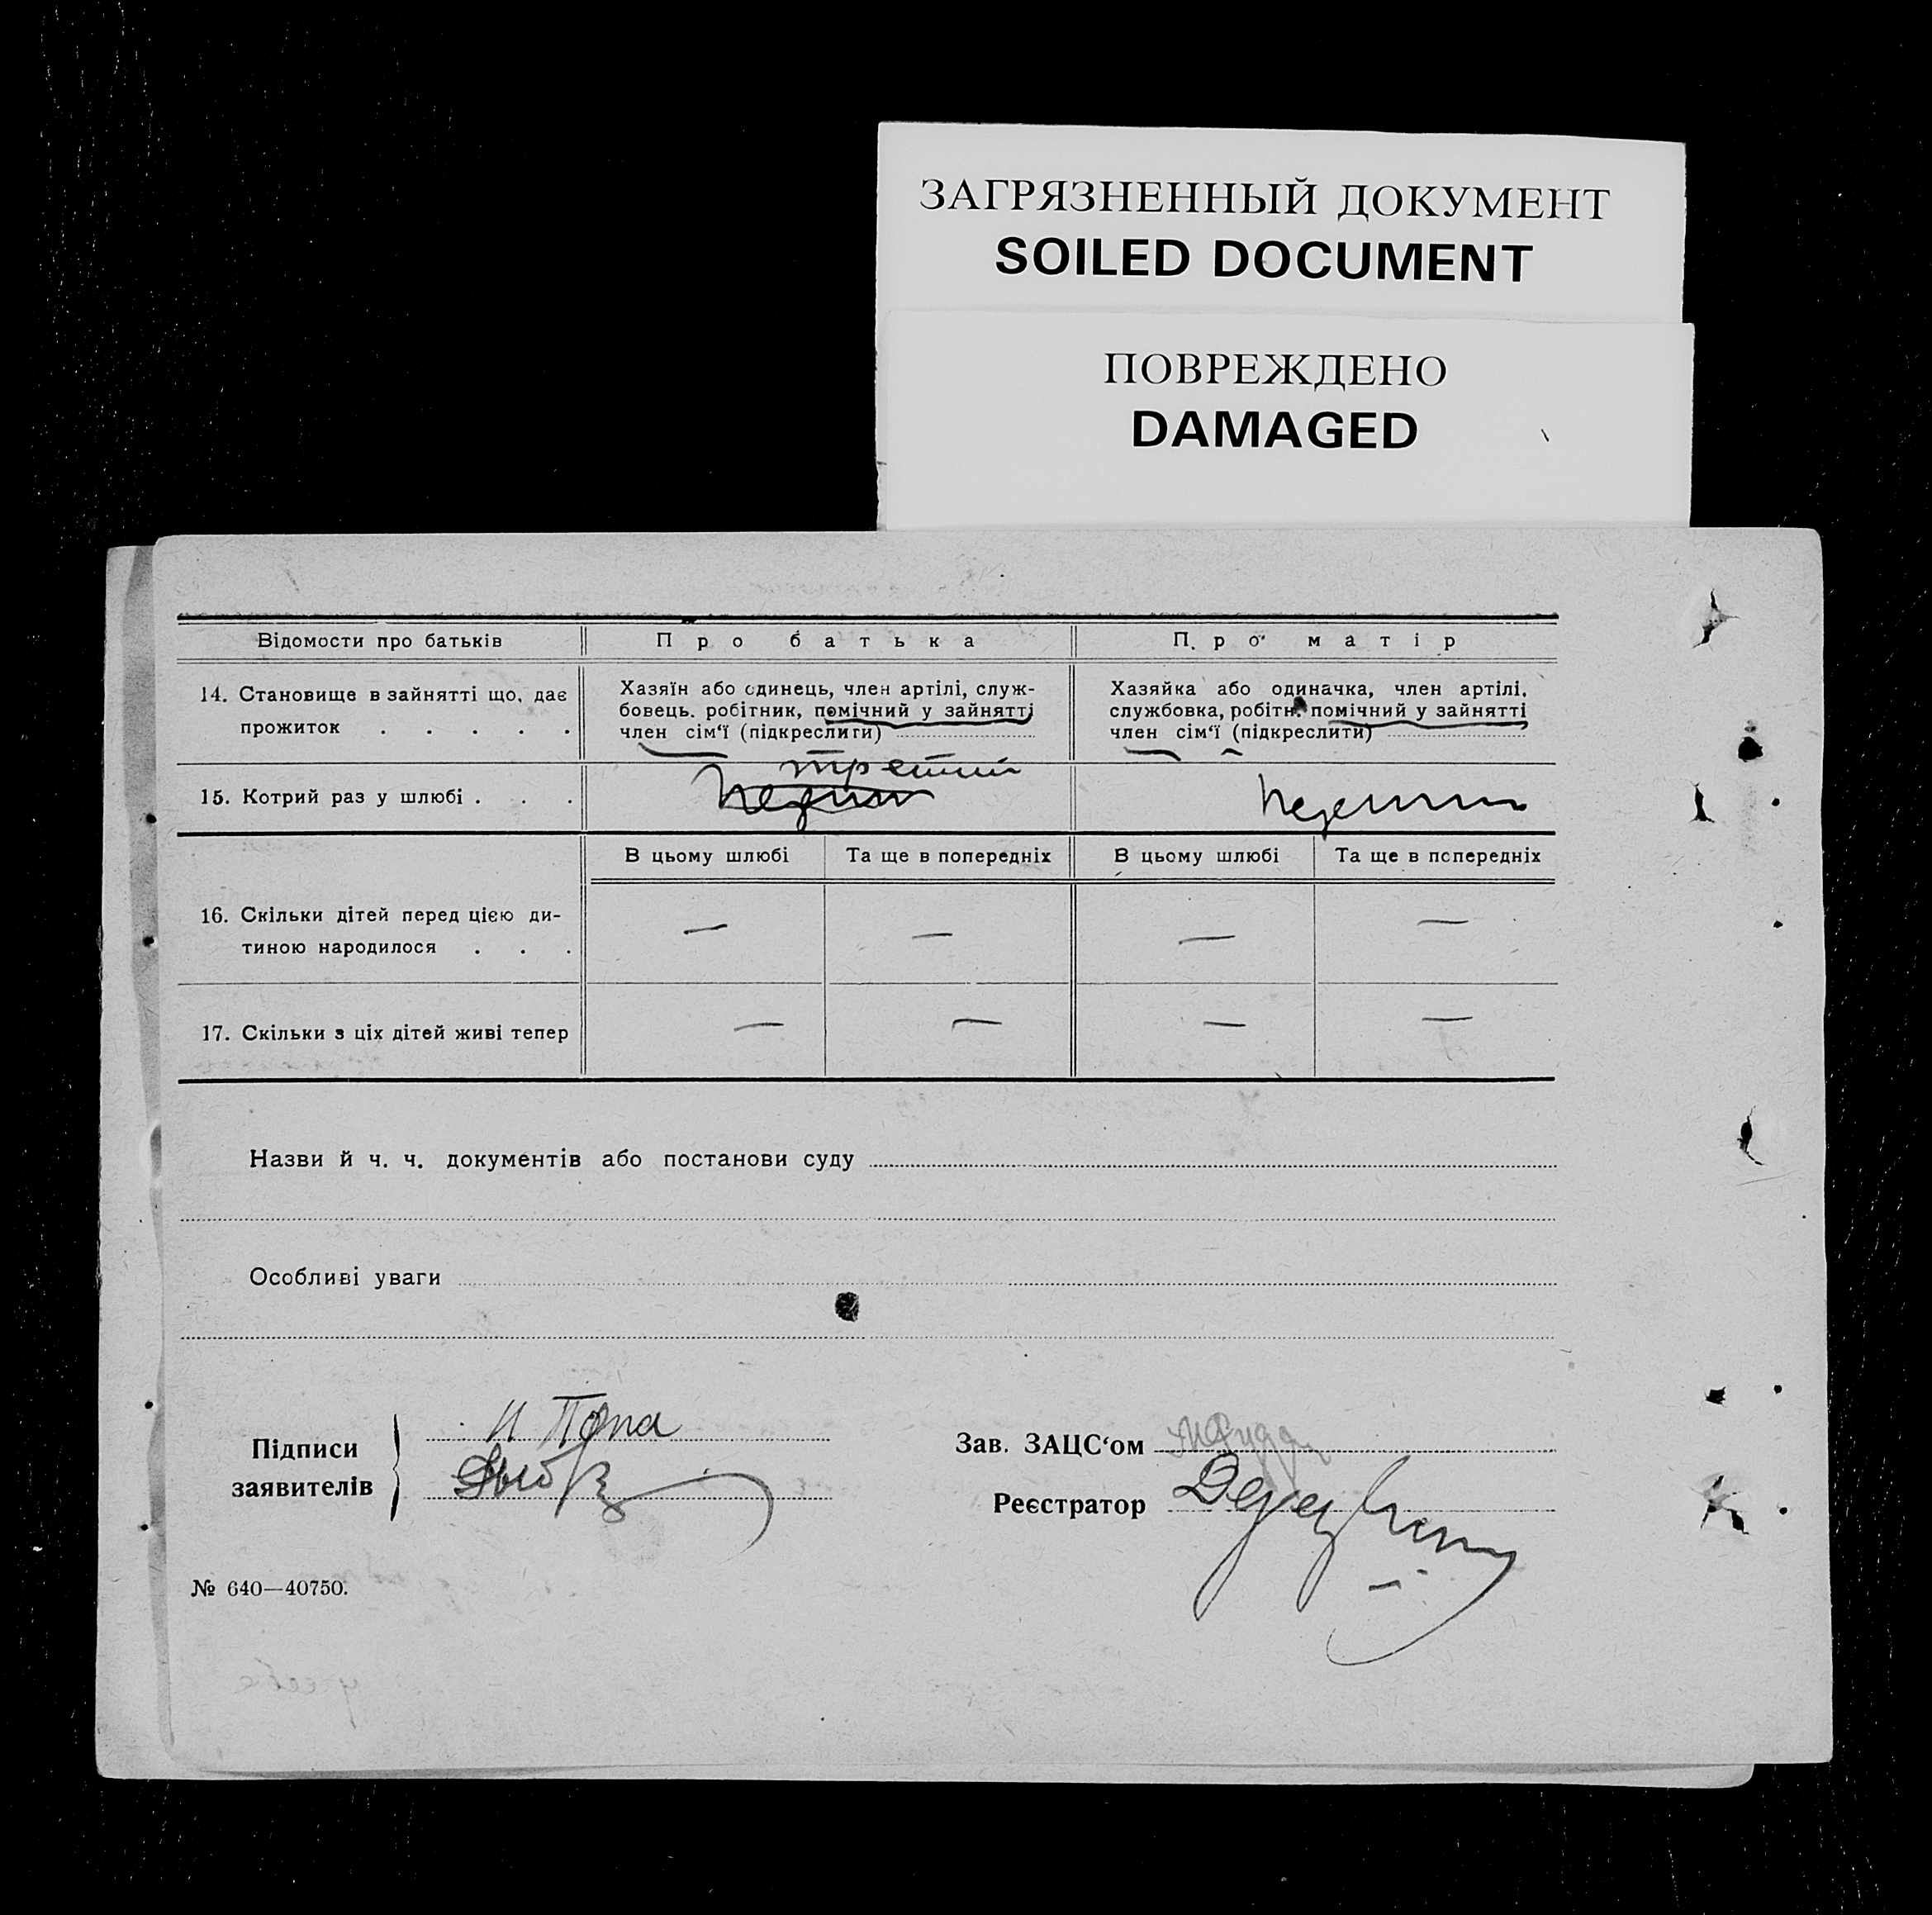 ЗАГРЯЗНЕННЫЙ ДОКУМЕНТ
SOILED DOCUMENT
ПОВРЕЖДЕНО
DAMAGED
Відомости про батьків
Про батька
Про матір
14. Становище в зайнятті що, дає
прожиток . . . . .
Хазяїн або одинець, член артілі, служ-
бовець. робітник, помічний у зайнятті
член сім‘ї (підкреслити)
Хазяйка або одиначка, член артілі.
службовка, робітн. помічний у зайнятті
член сім‘ї (підкреслити)
15. Котрий раз у шлюбі . . .
третий
В цьому шлюбі
Та ще в попередніх
В цьому шлюбі
Та ще в попередніх
16. Скільки дітей перед цією ди-
тиною народилося . . .
— — — —
17. Скільки з ціх дітей живі тепер
— — — —
Назви й ч. ч. документів або постанови суду
Особливі уваги
Підписи
заявителів
И Попа
Зав. ЗАЦС‘ом
Реєстратор
№ 640—40750.